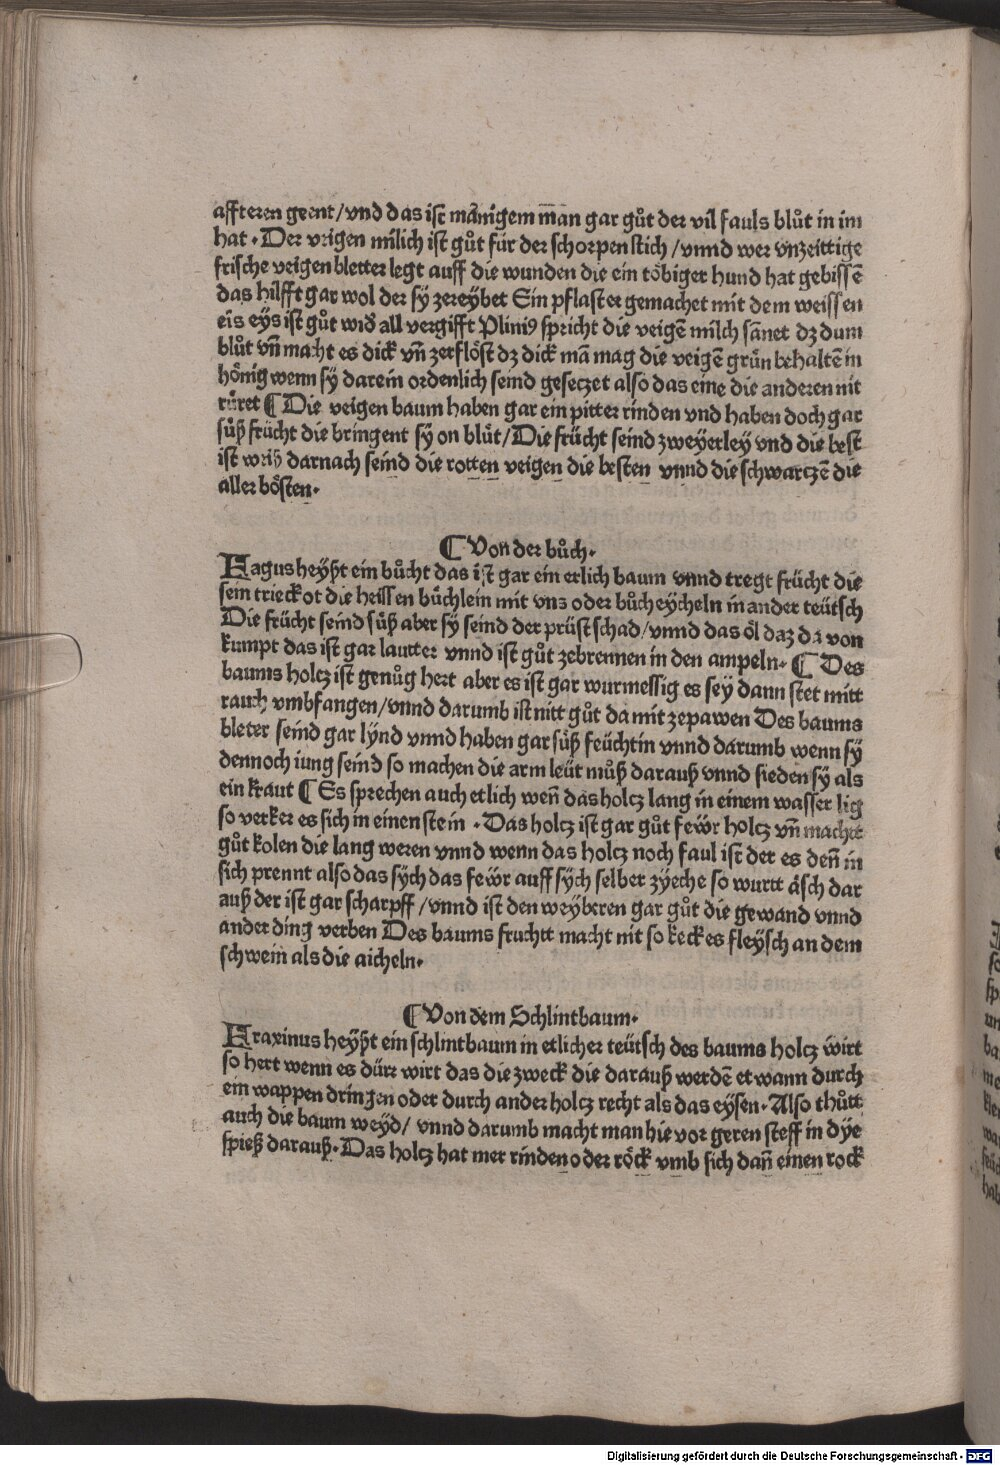 affteren geent/vnd das ist mãnigem man gar gůt der vil fauls blůt in im
hat. Der veigen milich ist gůt für der schorpen stich/vnnd wer vnzeittige
frische veigen bletter legt auff die wunden die ein töbiger hund hat gebissẽ
das hilfft gar wol der sÿ zereybet Ein pflaster gemachet mit dem weissen
eīs eys ist gůt wid̕ all vergifft Pliniꝰ spricht die veigẽ milch sãnet dz dum
blůt vñ macht es dick vñ zerflöst dz dick mã mag die veigẽ grün behaltẽ in
hönig wenn sÿ darein ordenlich seind geseczet also das eine die anderen nit
rüret ¶ Die veigen baum haben gar ein pitter rinden vnd haben doch gar
süß frücht die bringent sÿ on blüt/Die frücht seind zweyerley vnd die best
ist weiß darnach seind die rotten veigen die besten vnnd die schwarczẽ die
aller bösten.
¶ Von der bůch.
Fagus heyßt ein bůcht das ist gar ein erlich baum vnnd tregt frücht die
sein trieckot die heissen büchlein mit vnz oder bůcheycheln in ander teütsch
Die frücht seind süß aber sÿ seind der prüst schad/vnnd das öl daz da von
kumpt das ist gar lautter vnnd ist gůt zebrennen in den ampeln. ¶ Des
baums holcz ist genůg hert aber es ist gar wurmessig es sey dann stet mitt
rauch vmbfangen/vnnd darumb ist nitt gůt da mit zepawen Des baums
bleter seind gar lÿnd vnnd haben gar süß feüchtin vnnd darumb wenn sÿ
dennoch iung seind so machen die arm leüt můß darauß vnnd sieden sÿ als
ein kraut ¶ Es sprechen auch etlich weñ das holcz lang in einem wasser lig
so verker es sich in einen stein . Das holcz ist gar gůt fewr holcz vñ machet
gůt kolen die lang weren vnnd wenn das holcz noch faul ist der es deñ in
sich prennt also das sÿch das fewr auff sÿch selber zÿeche so wurtt äsch dar
auß der ist gar scharpff/vnnd ist den weyberen gar gůt die gewand vnnd
ander ding verben Des baums fruchtt macht nit so keckes fleysch an dem
schwein als die aicheln.
¶ Von dem Schlintbaum.
Fraxinus heyßt ein schlintbaum in etlicher teütsch des baums holcz wirt
so hert wenn es dürr wirt das die zweck die darauß werdẽ etwann durch
ein wappen dringen oder durch ander holcz recht als das eysen. Also thůtt
auch die baum weyd/ vnnd darumb macht man hie vor geren steff in dÿe
spieß darauß. Das holcz hat mer rinden oder röck vmb sich dañ einen rock
Digitalisierung gefördert durch die Deutsche Forschungsgemeinschaft - DFG